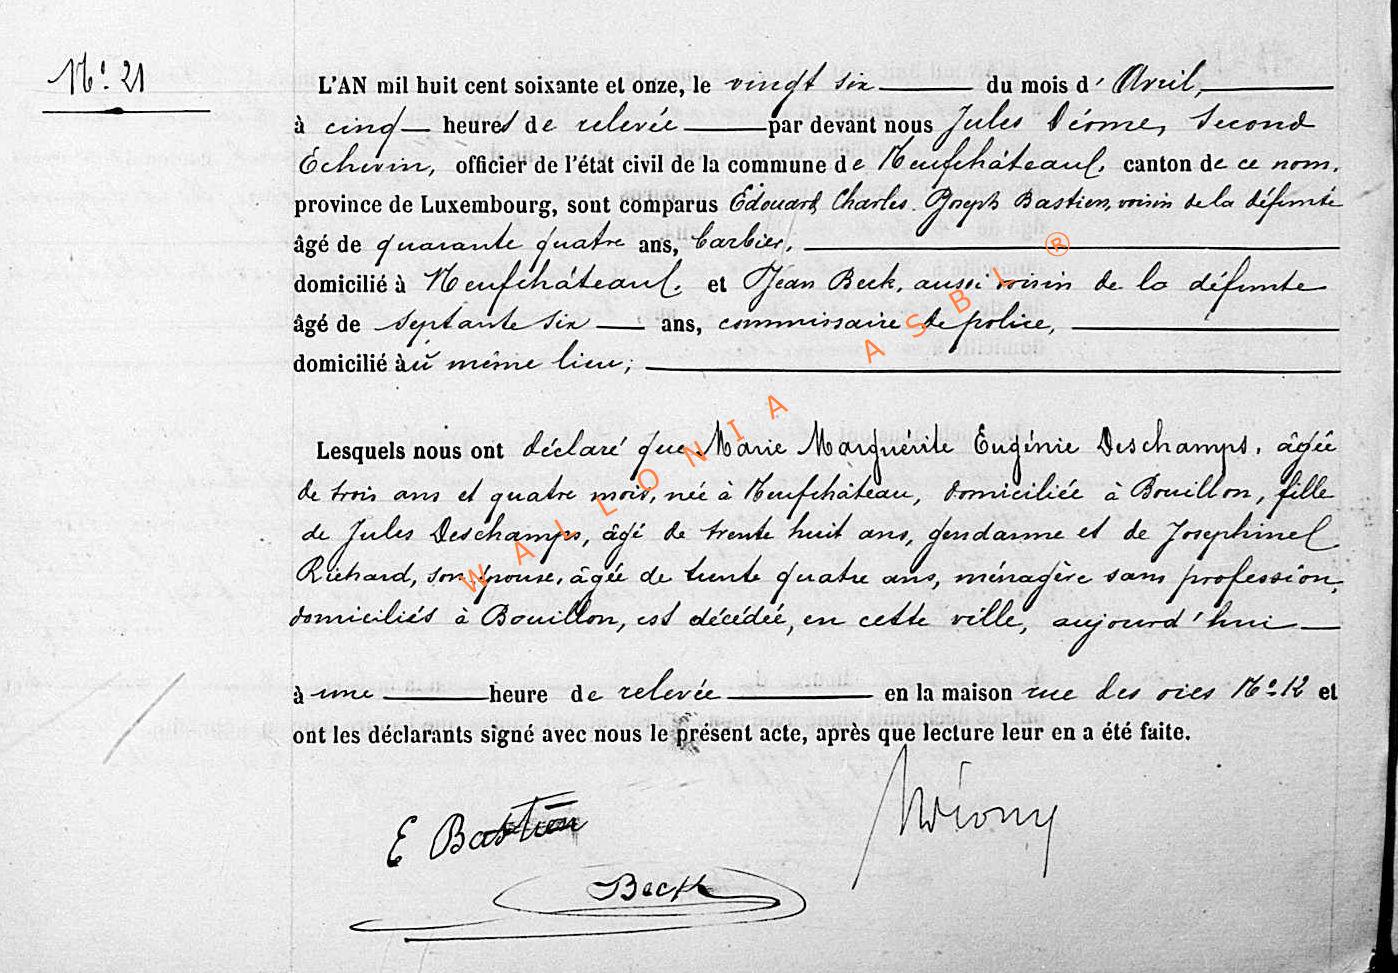 N° 21
L'AN mil huit cent soixante et onze, le vingt six du mois d' Avril,
à cinq heures de relevée par devant nous Jules Déome, Second
Echevin, officier de l'état civil de la commune de Neufchâteau, canton de ce nom,
province de Luxembourg, sont comparus Edouard Charles Joseph Bastien, voisin de la défunte
âgé de quarante quatre ans, barbier,
domicilié à Neufchâteau, et Jean Beck, aussi voisin de la défunte
âgé de septante six ans, commissaire de police,
domicilié àu même lieu;
Lesquels nous ont déclaré que Marie Marguérite Eugénie Deschamps, âgée
de trois ans et quatre mois, née à Neufchâteau, domiciliée à Bouillon, fille
de Jules Deschamps, âgé de trente huit ans, gendarme et de Josephine
Richard, son épouse, âgée de trente quatre ans, ménagère sans profession,
domiciliés à Bouillon, est décédée, en cette ville, aujourd'hui
à une heure de relevée en la maison rue des oies N° 12 et
ont les déclarants signé avec nous le présent acte, après que lecture leur en a été faite.
E Bastien
Beck
WALLONIA ASBL ®